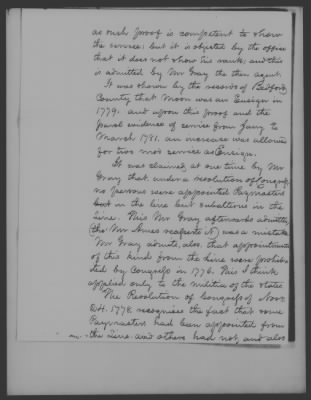 as such proof is competent to show
the service; but it is objected by the office
that it does not show his rank; and this
is admitted by Mr Gray the then agent.
It was shown by the records of Bedford
County that Moon was an Ensign in
1779. and upon this proof and the
parol evidence of service from Jany to
March 1781. an increase was allowed
for two mos service as Ensign.
It was claimed at one time by Mr
Gray that under a resolution of Congress
no persons were appointed Paymasters
but in the line but subalterns in the
Line. This Mr Gray afterwards admitted
(the Mr Ames reaperts N) was a mistake
Mr Gray admits, also, that appointments
of this kind from the Line were prohibi-
ted by Congress in 1776. This I think
applied only to the militia of the states
The Resolution of Congress of Novr
24. 1778 recognises the fact that some
Paymasters had been appointed from
the Line and others had not, and also